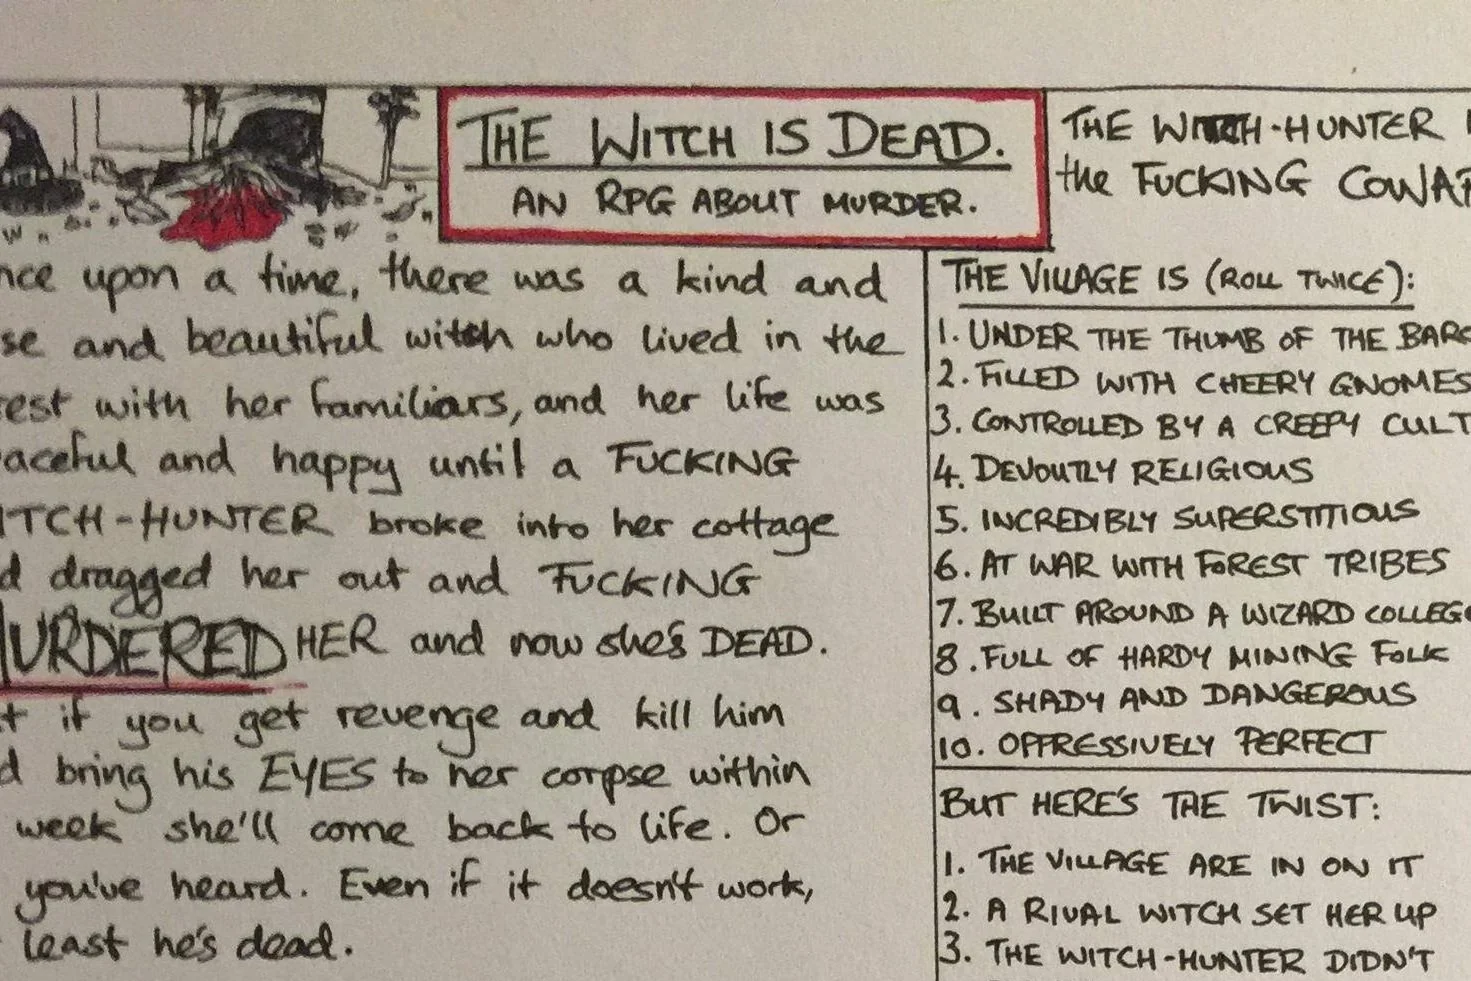 THE WITCH IS DEAD.
AN RPG ABOUT MURDER.
nce upon a time, there was a kind and
se and beautiful witch who lived in the
rest with her familiars, and her life was
aceful and happy until a FUCKING
ITCH-HUNTER broke into her cottage
d dragged her out and FUCKING
MURDERED HER and now she's DEAD.
t if you get revenge and kill him
d bring his EYES to her corpse within
week she'll come back to life. Or
you've heard. Even if it doesn't work,
least he's dead.
THE WITCH-HUNTER
the FUCKING COWAR
THE VILLAGE IS (ROLL TWICE):
1. UNDER THE THUMB OF THE BARO
2. FILLED WITH CHEERY GNOMES
3. CONTROLLED BY A CREEPY CULT
4. DEVOUTLY RELIGIOUS
5. INCREDIBLY SUPERSTITIOUS
6. AT WAR WITH FOREST TRIBES
7. BUILT AROUND A WIZARD COLLEG
8. FULL OF HARDY MINING FOLK
9. SHADY AND DANGEROUS
10. OPPRESSIVELY PERFECT
BUT HERE'S THE TWIST:
1. THE VILLAGE ARE IN ON IT
2. A RIVAL WITCH SET HER UP
3. THE WITCH-HUNTER DIDN'T